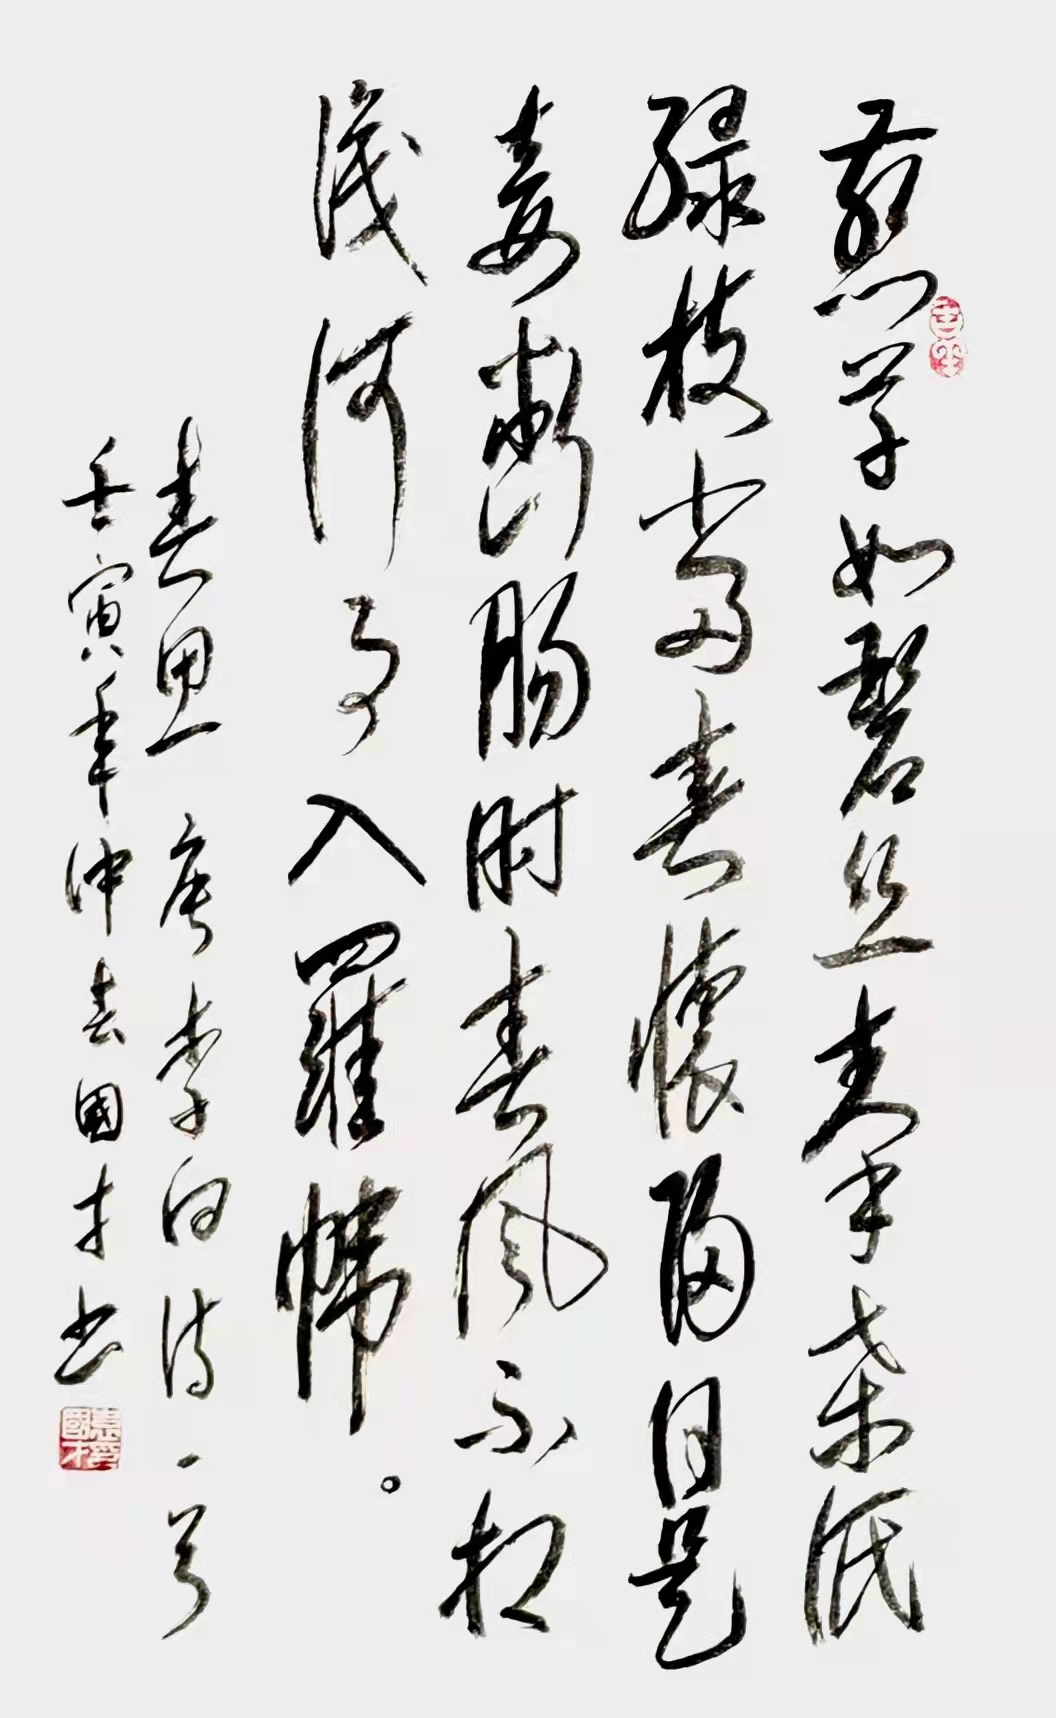 燕草如碧丝秦桑低
绿枝当春懷归日是
妾断肠时春风不相
識何事入羅幃。
春思 唐李白诗一首
壬寅年仲春國才书